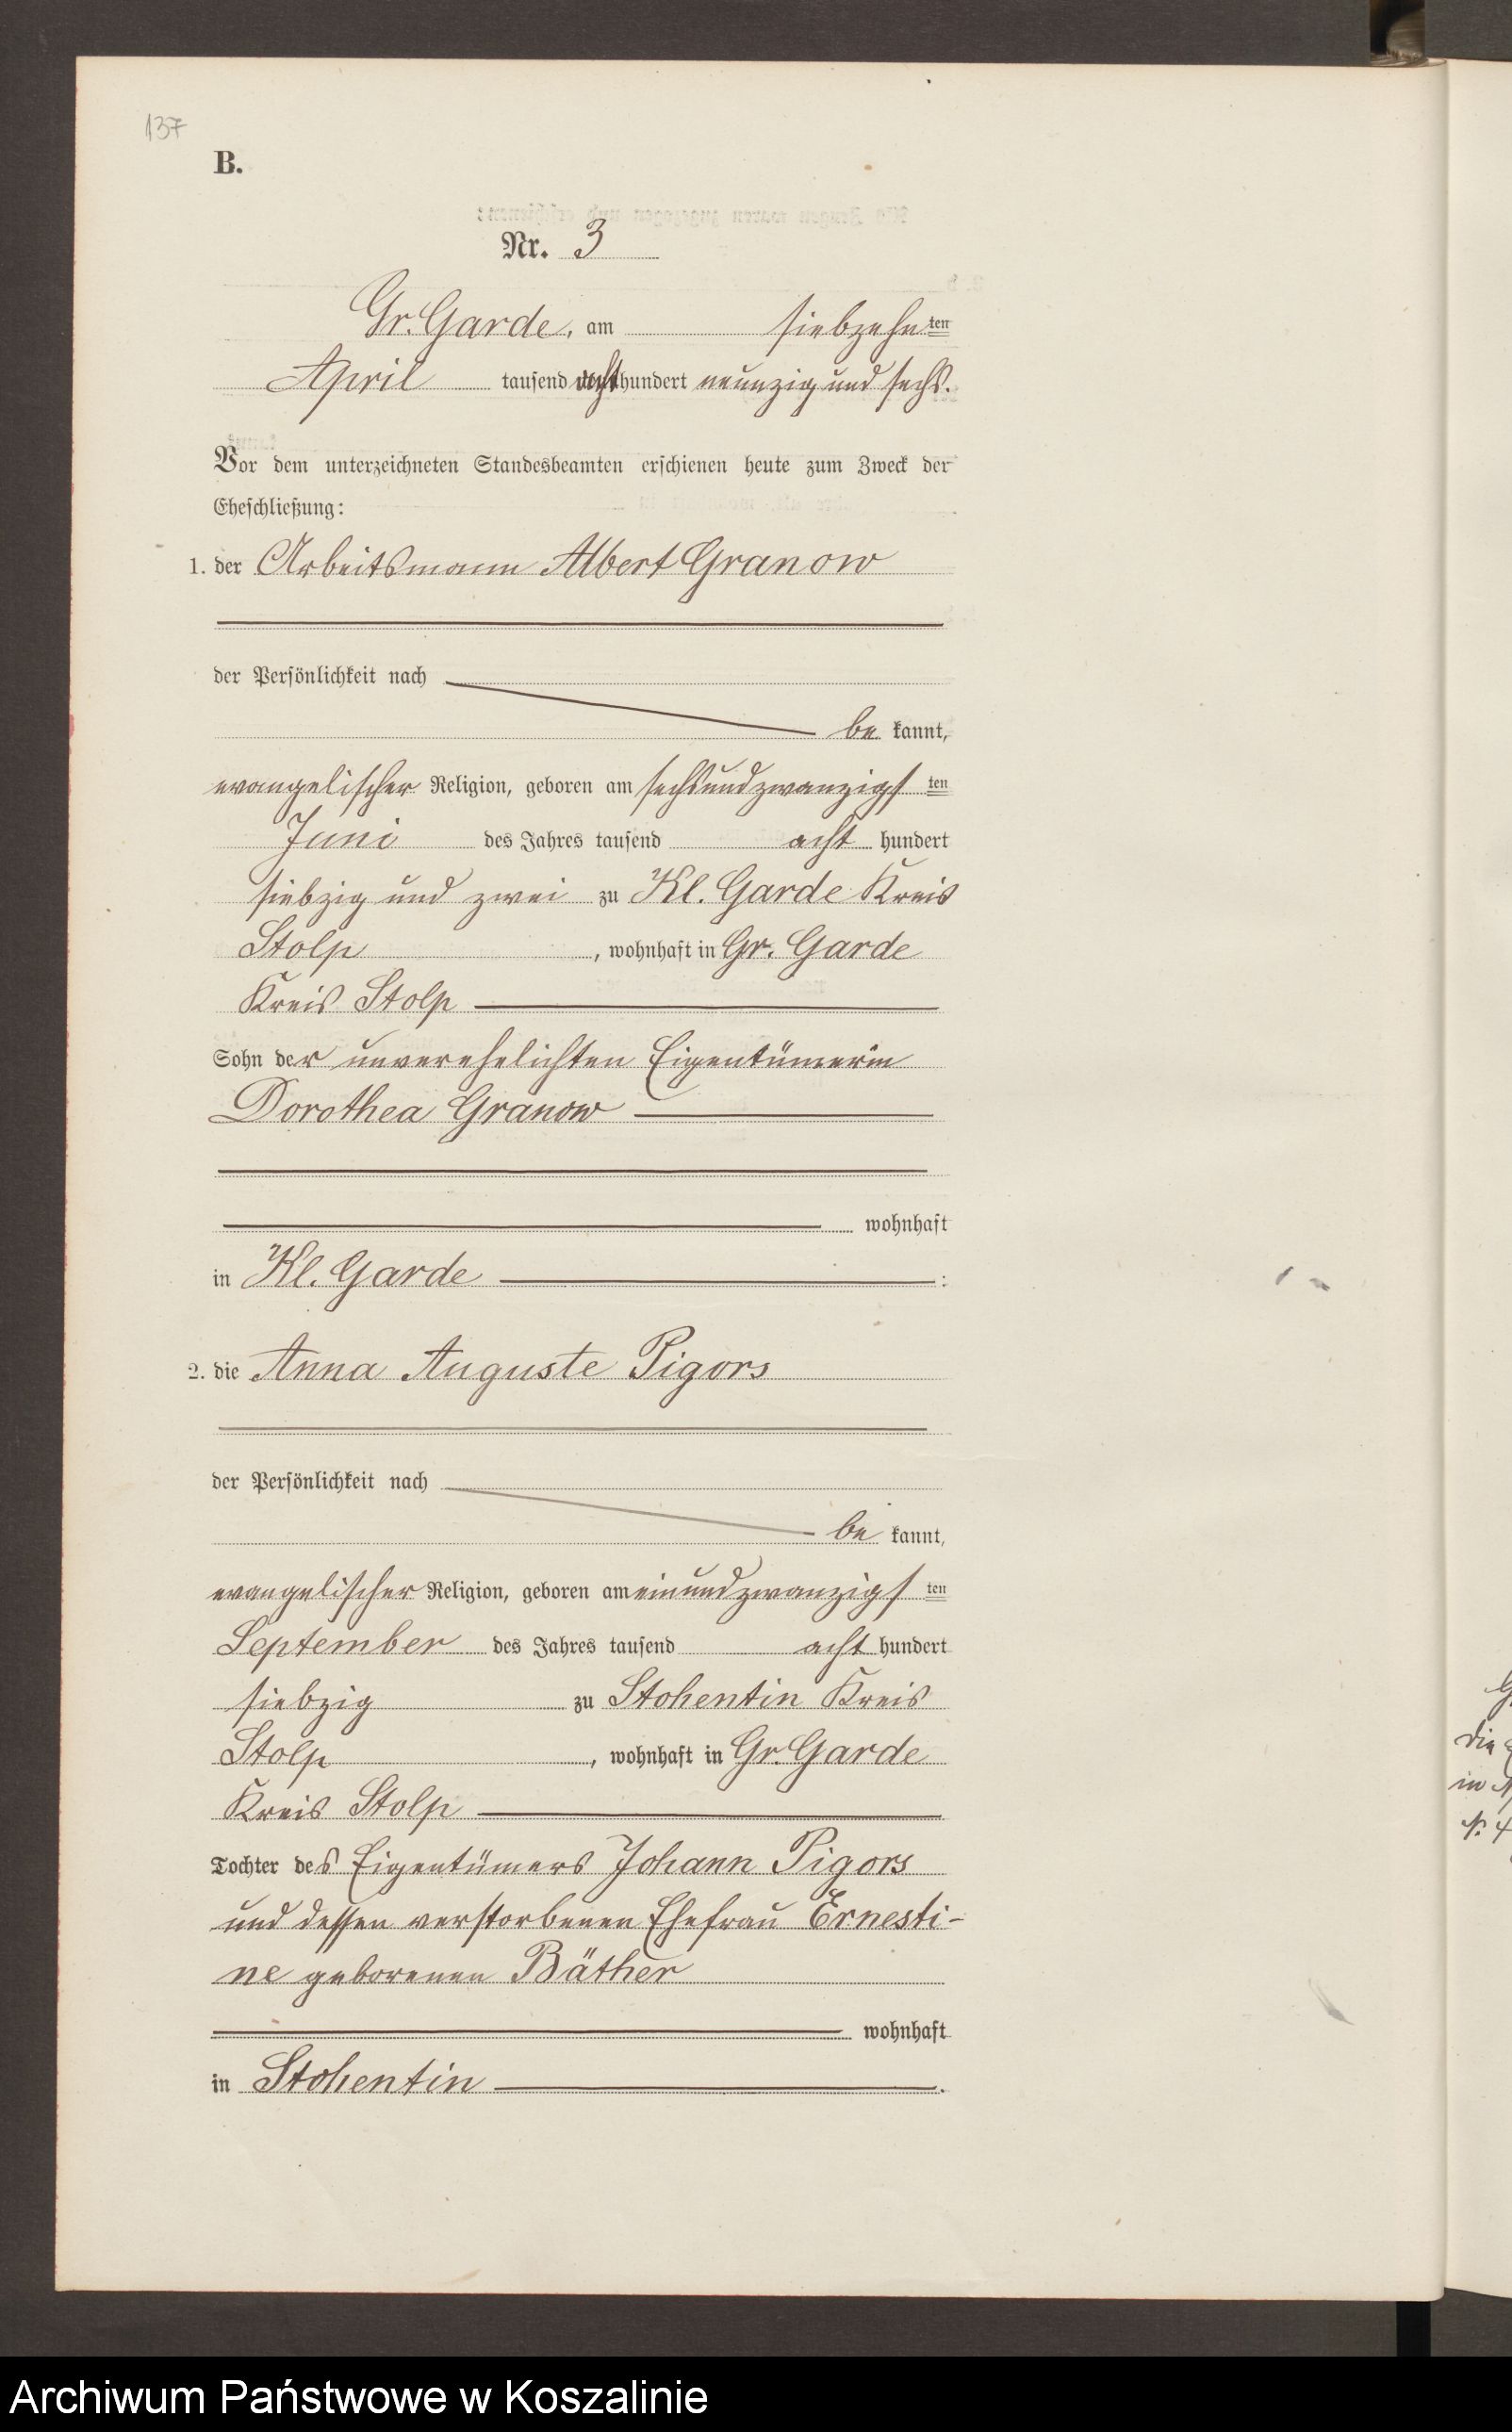 137
B.
Nr. 3
Gr. Garde, am siebzehnten
April tausend achthundert neunzig und sechs.
Vor dem unterzeichneten Standesbeamten erschienen heute zum Zweck der
Eheschließung:
1. der Arbeitsmann Albert Granow
der Persönlichkeit nach
be kannt,
evangelischer Religion, geboren am sechsundzwanzigsten
Juni des Jahres tausend acht hundert
siebzig und zwei zu Kl. Garde Kreis
Stolp, wohnhaft in Gr. Garde
Kreis Stolp
Sohn der unverehelichten Eigentümerin
Dorothea Granow
wohnhaft
in Kl. Garde :
2. die Anna Auguste Pigors
der Persönlichkeit nach
be kannt,
evangelischer Religion, geboren am einundzwanzigsten
September des Jahres tausend acht hundert
siebzig zu Stohentin Kreis
Stolp, wohnhaft in Gr. Garde
Kreis Stolp
Tochter des Eigentümers Johann Pigors
und dessen verstorbenen Ehefrau Ernesti-
ne geborenen Bäther
wohnhaft
in Stohentin.
die
in
Archiwum Państwowe w Koszalinie